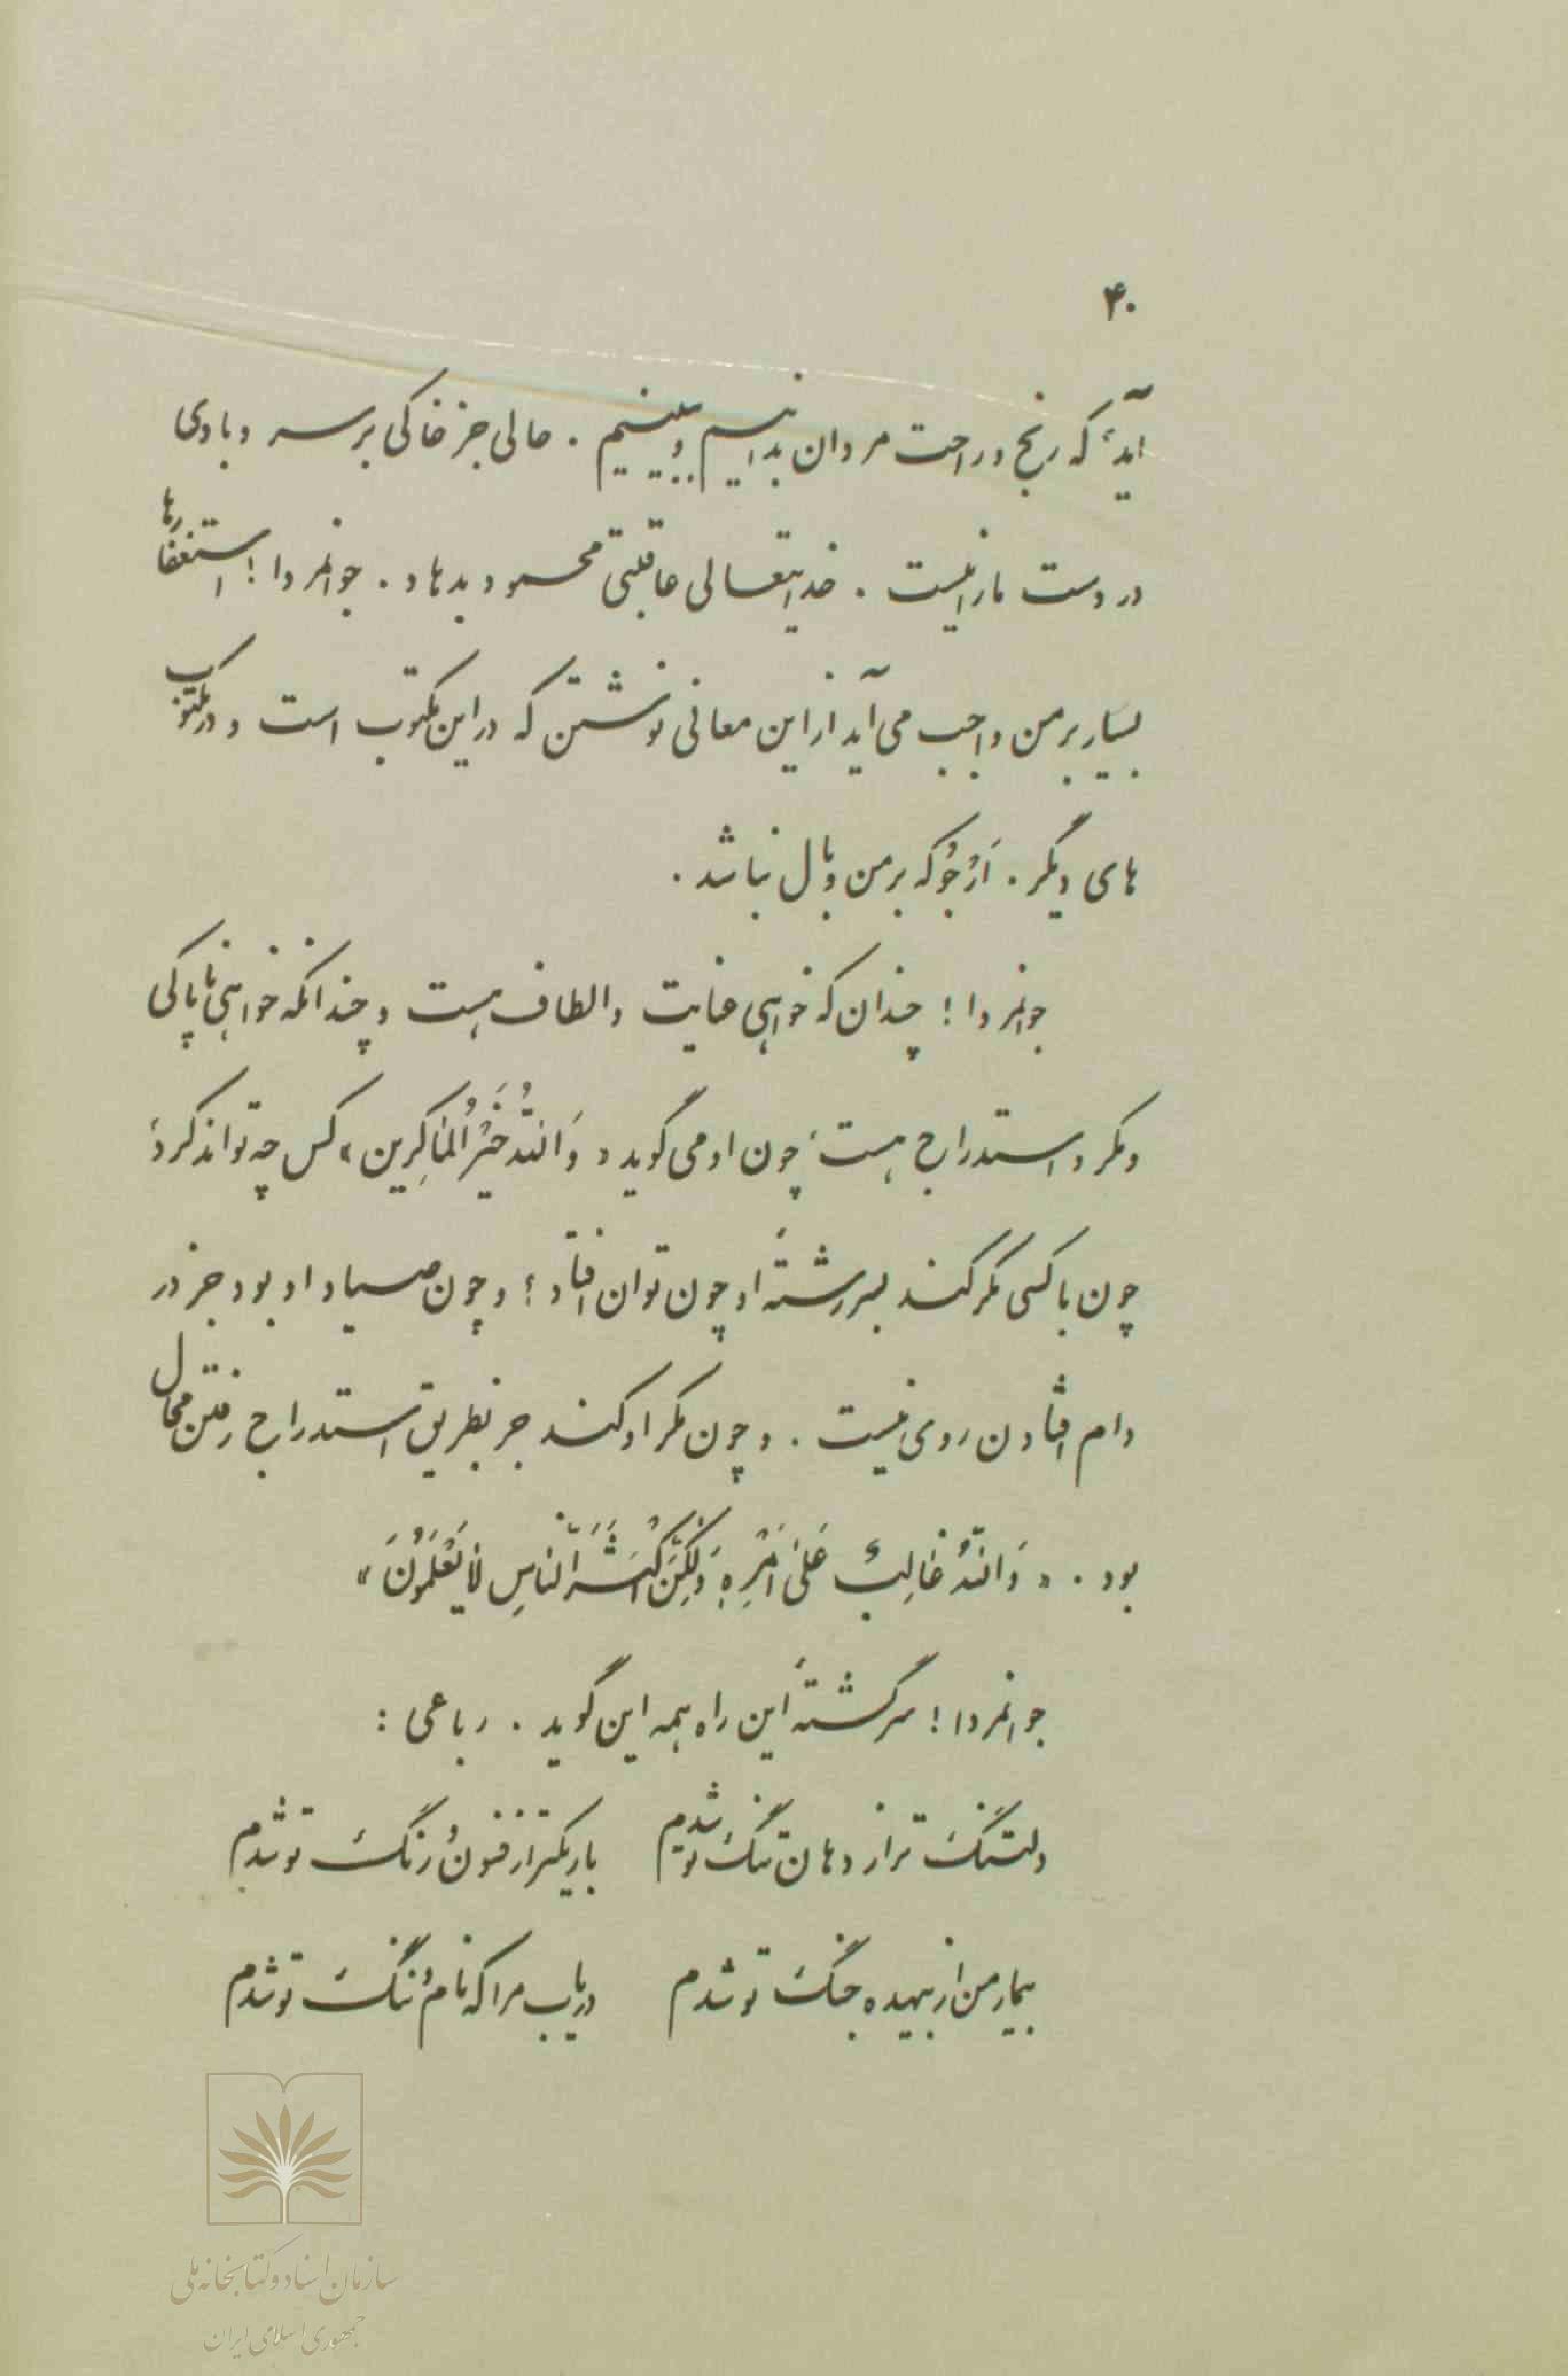 ۴۰
آید، که رنج و راحت مردان بدانیم و ببینیم. حالی جز خاکی بر سر و بادی
در دست ما را نیست. خدایتعالی عاقبتی محمود بدهاد. جوانمردا! استغفارها
بسیار بر من واجب می آید از این معانی نوشتن که در این مکتوب است و در مکتوب
های دیگر. اَرْجُو که بر من وبال نباشد.
جوانمردا! چندان که خواهی عنایت و الطاف هست و چندانکه خواهی ناپاکی
و مکر و استدراج هست، چون او می گوید «وَاللّهُ خَیْرُ الْمٰاکِرین» کس چه تواند کرد؛
چون با کسی مکر کند بسر رشتهٔ او چون توان افتاد؛ و چون صیاد او بود جز در
دام افتادن روی نیست. و چون مکر او کند جز بطریق استدراج رفتن محال
بود. «وَاللّهُ غٰالِبٌ عَلیٰ اَمْرِهِ وَلٰکِنَّ اَکْثَرَ النّاسِ لٰا یَعْلَمُونَ»
جوانمردا! سرگشتهٔ این راه همه این گوید. رباعی:
دلتنگ تر از دهان تنگ تو شدم باریکتر از فنون رنگ تو شدم
بیمار من از بیهده جنگ تو شدم دریاب مرا که نام و ننگ تو شدم
سازمان اسناد و کتابخانه ملی
جمهوری اسلامی ایران